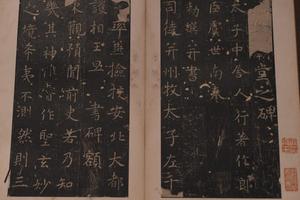 宣之碑
太子中舍人行著作郎
臣虞世南奉
勑撰并書
司徒并州牧太子左千
牛率兼檢校安北大都
護相王旦書碑額
東觀閱前史若乃知
幾其神惟睿作聖玄妙
之境希夷不測然則三